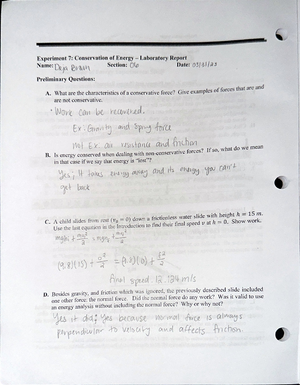 Experiment 7: Conservation of Energy – Laboratory Report
Name: Deja Brown Section: Date: 03/21/23
Preliminary Questions:
A. What are the characteristics of a conservative force? Give examples of forces that are and
are not conservative.
- Work can be recovered.
Ex: Gravity and Spring force
not Ex: air resistance and friction
B. Is energy conserved when dealing with non-conservative forces? If so, what do we mean
in that case if we say that energy is "lost"?
Yes, it takes energy away and its energy you can't
get back
C. A child slides from rest (v₀ = 0) down a frictionless water slide with height h = 15 m.
Use the last equation in the Introduction to find their final speed v at h = 0. Show work.
(9.8)(15) + 0²/2 = (9.8)(0) +
final speed m/s
D. Besides gravity, and friction which was ignored, the previously described slide included
one other force: the normal force. Did the normal force do any work? Was it valid to use
an energy analysis without including the normal force? Why or why not?
Yes it did; Yes because normal force is always
perpendicular to velocity and affects friction.